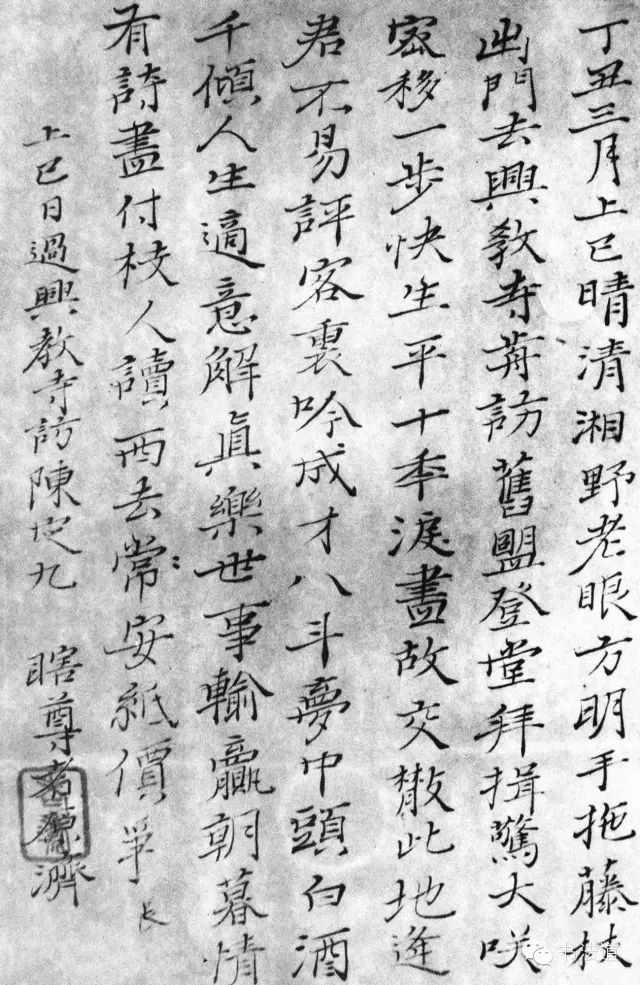 丁丑三月上巳晴清湘野老眼方明手拖藤杖
出門去興教寺訪舊盟登堂拜揖驚大咲
密移一步快生平十秊淚盡故交散此地逢
君不易評客裏吟成才八斗夢中頭白酒
千傾人生適意解眞樂世事輸贏朝暮情
有詩盡付枝人讀西去常安紙價爭 長
上巳日過興教寺訪陳定九 瞎尊者原濟